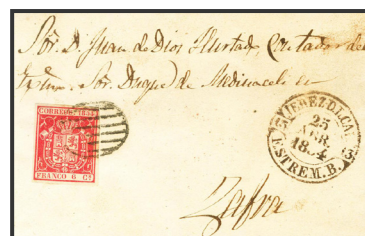 Sor. D. Juan de Dios Hurtado, Contador del
Exmo. Sor. Duque de Medinaceli en
CORREOS 1854
FRANCO 6 Cs.
JEREZ D.L.CA.
25
ABR.
1854
ESTREM. B.
Zafra